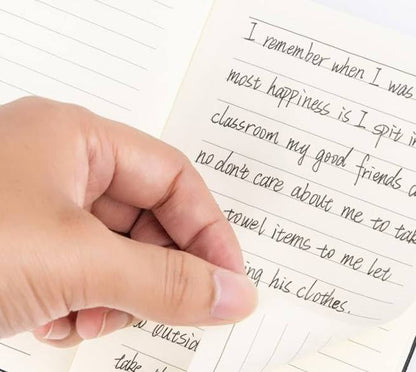 I remember when I was
most happiness is I spit in
classroom my good friends a
no don't care about me to tak
towel items to me let
ing his clothes.
outsid
take